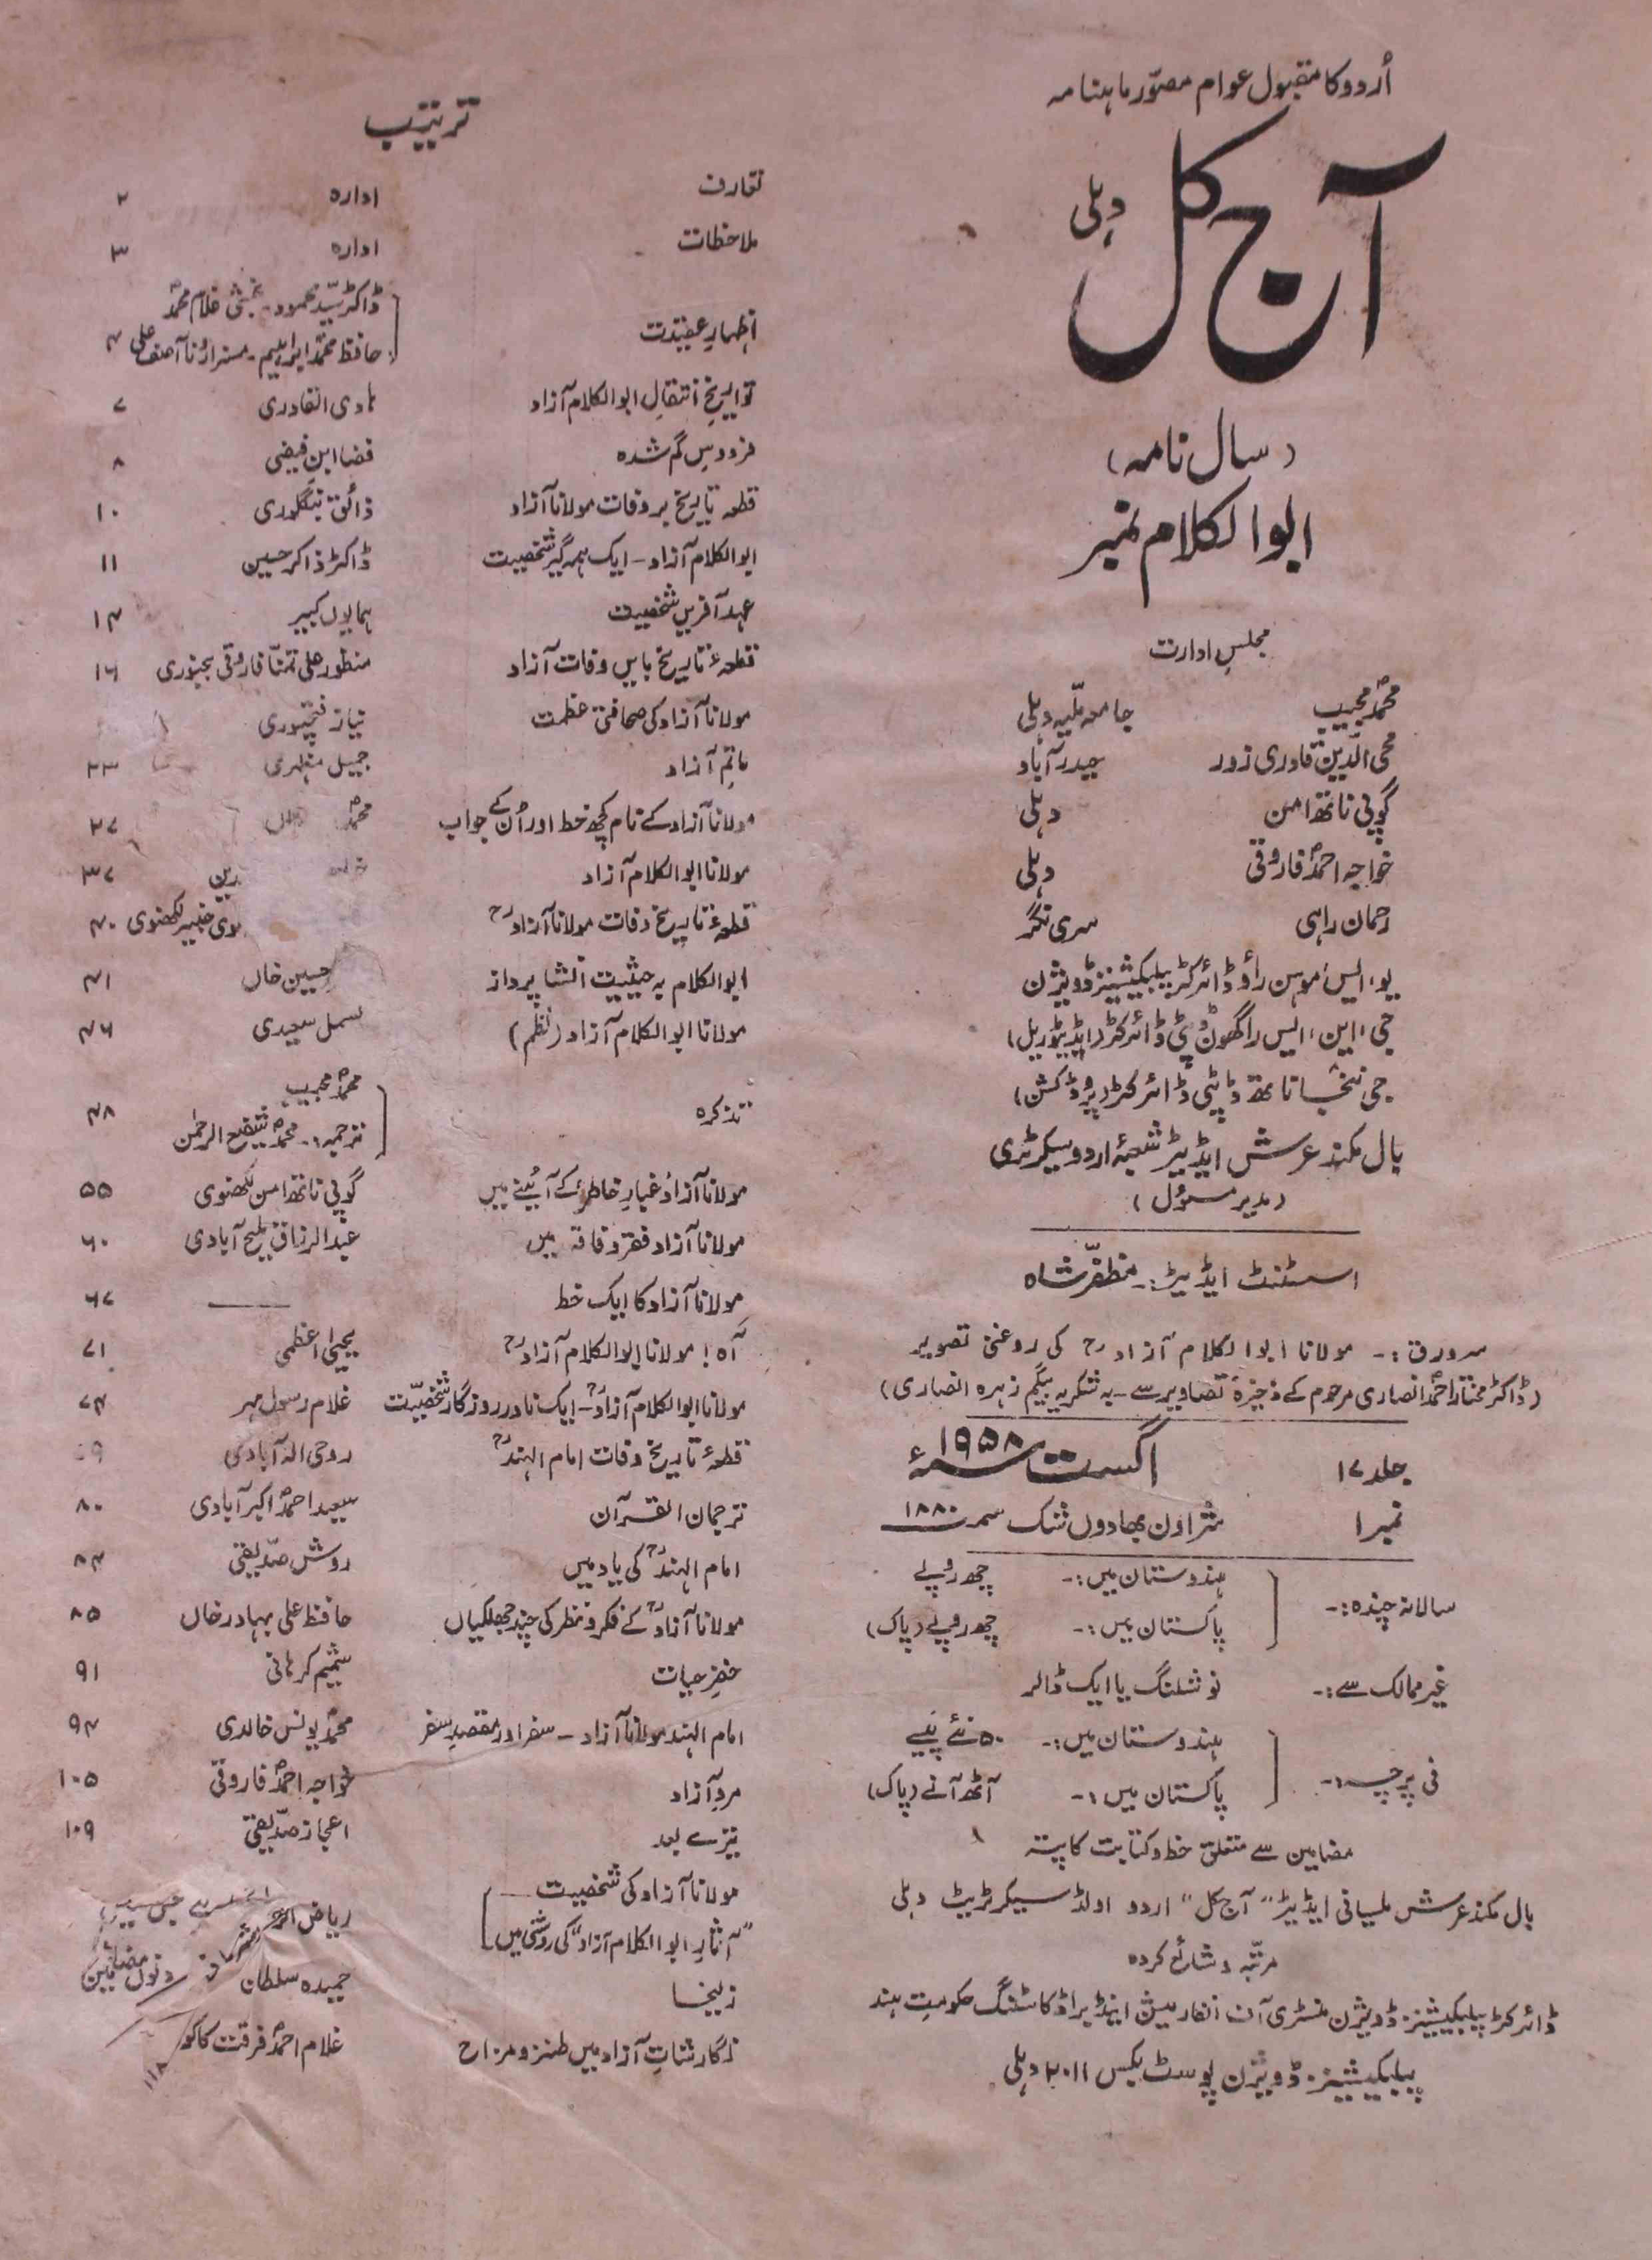 اُردو کا مقبول عوام مصوّر ماہنامہ
آج کل دہلی
(سال نامہ)
ابوالکلام نمبر
مجلسِ ادارت
محمدؐ مجیب جامعہ ملّیہ دہلی
محی الدین قادری زور حیدرآباد
گوپی ناتھ امن دہلی
خواجہ احمدؐ فاروقی دہلی
رحمان راہی سری نگر
یو، ایس، موہن راؤ ڈائرکٹر پبلیکیشنز ڈویژن
جی، این، ایس راگھون ڈپٹی ڈائرکٹر (ایڈیٹوریل)
جی ننجناتھ ڈپٹی ڈائرکٹر (پروڈکشن)
بال مکند عرش ایڈیٹر شعبۂ اردو سیکرٹری
(مدیر مسؤل)
اسسٹنٹ ایڈیٹر:۔ مظفّر شاہ
سرورق:۔ مولانا ابوالکلام آزادؒ کی روغنی تصویر
(ڈاکٹر مختار احمدؐ انصاری مرحوم کے ذخیرۂ تصاویر سے۔ بہ شکریہ بیگم زہرہ انصاری)
جلد ۱۷ اگست ۱۹۵۸ء
نمبر ۱ شراون بھادوں شک سمت ۱۸۸۰
سالانہ چندہ:۔ ہندوستان میں:۔ چھ روپے
پاکستان میں:۔ چھ روپے (پاک)
غیر ممالک سے:۔ نو شلنگ یا ایک ڈالر
فی پرچہ:۔ ہندوستان میں:۔ ۵۰ نئے پیسے
پاکستان میں:۔ آٹھ آنے (پاک)
مضامین سے متعلق خط و کتابت کا پتہ
بال مکند عرش ملسیانی ایڈیٹر "آج کل" اردو اولڈ سیکرٹریٹ دہلی
مرتّبہ و شائع کردہ
ڈائرکٹر پبلیکیشنز ڈویژن منسٹری آف انفارمیشن اینڈ براڈکاسٹنگ حکومتِ ہند
پبلیکیشنز ڈویژن پوسٹ بکس ۲۰۱۱ دہلی
ترتیب
تعارف ادارہ ۲
ملاحظات ادارہ ۳
اظہارِ عقیدت ڈاکٹر سیّد محمود۔ بخشی غلام محمدؐ
حافظ محمدؐ ابراہیم۔ مسز ارونا آصف علی ۴
تواریخِ انتقالِ ابوالکلام آزاد ہادی القادری ۷
فردوسِ گم شدہ فضا ابنِ فیضی ۸
قطعہ تاریخ بر وفات مولانا آزاد ذائق بنگلوری ۱۰
ابوالکلام آزاد۔ ایک ہمہ گیر شخصیت ڈاکٹر ذاکر حسین ۱۱
عہد آفریں شخصیت ہمایوں کبیر ۱۴
قطعۂ تاریخ بایں وفات آزاد منظور علی تمنّا فاروقی بجنوری ۱۶
مولانا آزاد کی صحافتی عظمت نیاز فتحپوری
ماتمِ آزاد جمیل مظہری ۲۳
مولانا آزاد کے نام کچھ خط اور اُن کے جواب محمدؐ ۲۷
مولانا ابوالکلام آزاد ۳۷
قطعۂ تاریخ وفات مولانا آزادؒ لکھنوی ۴۰
ابوالکلام بہ حیثیت انشا پرداز حسین خاں ۴۱
مولانا ابوالکلام آزاد (نظم) بسمل سعیدی ۴۶
تذکرہ محمدؐ مجیب
ترجمہ:۔ محمدؐ شفیع الرحمٰن ۴۸
مولانا آزاد غبارِ خاطر کے آئینے میں گوپی ناتھ امن لکھنوی ۵۵
مولانا آزاد فقر و فاقہ میں عبدالرزاق ملیح آبادی ۶۰
مولانا آزاد کا ایک خط ــــــ ۶۷
آہ! مولانا ابوالکلام آزادؒ یحییٰ اعظمی ۷۱
مولانا ابوالکلام آزادؒ۔ ایک نادرِ روزگار شخصیّت غلام رسول مہر ۷۴
قطعۂ تاریخ وفات امام الہندؒ روحی الہ آبادی ۷۹
ترجمان القرآن سعید احمدؐ اکبرآبادی ۸۰
امام الہندؒ کی یاد میں روش صدّیقی ۸۴
مولانا آزادؒ کے فکر و نظر کی چند جھلکیاں حافظ علی بہادر خاں ۸۵
خضرِ حیات شمیم کرہانی ۹۱
امام الہند مولانا آزاد۔ سفر اور مقصدِ سفر محمدؐ یونس خالدی ۹۴
مردِ آزاد خواجہ احمدؐ فاروقی ۱۰۵
تیرے بعد اعجاز صدّیقی ۱۰۹
مولانا آزاد کی شخصیت
"آثارِ ابوالکلام آزاد" کی روشنی میں ریاض
زلیخا حمیدہ سلطان
نگارشاتِ آزاد میں طنز و مزاح غلام احمدؐ فرقت کاکو ۱۱۸